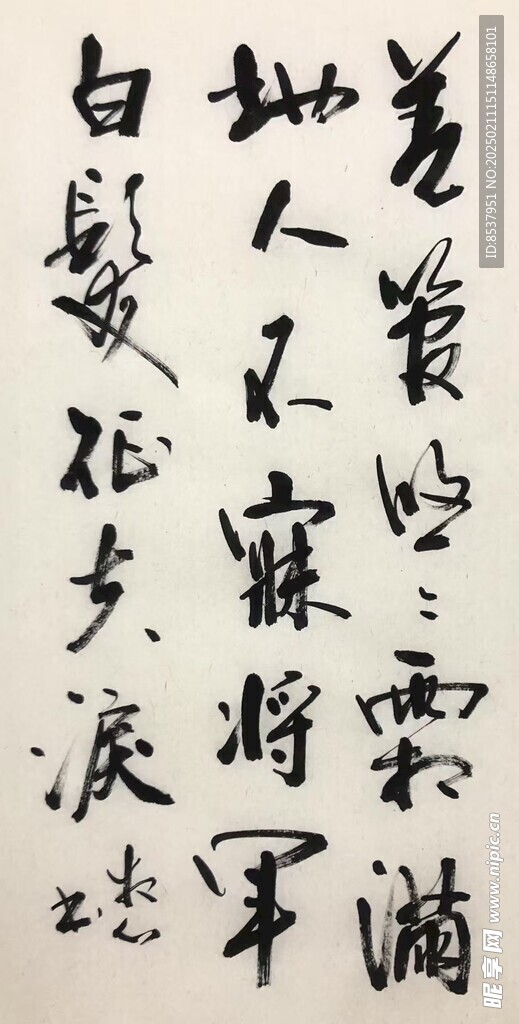 羌管悠悠霜满
地人不寐将军
白髮征夫淚
书
ID:8537951 NO:20250211151148658101
昵享网 www.nipic.cn